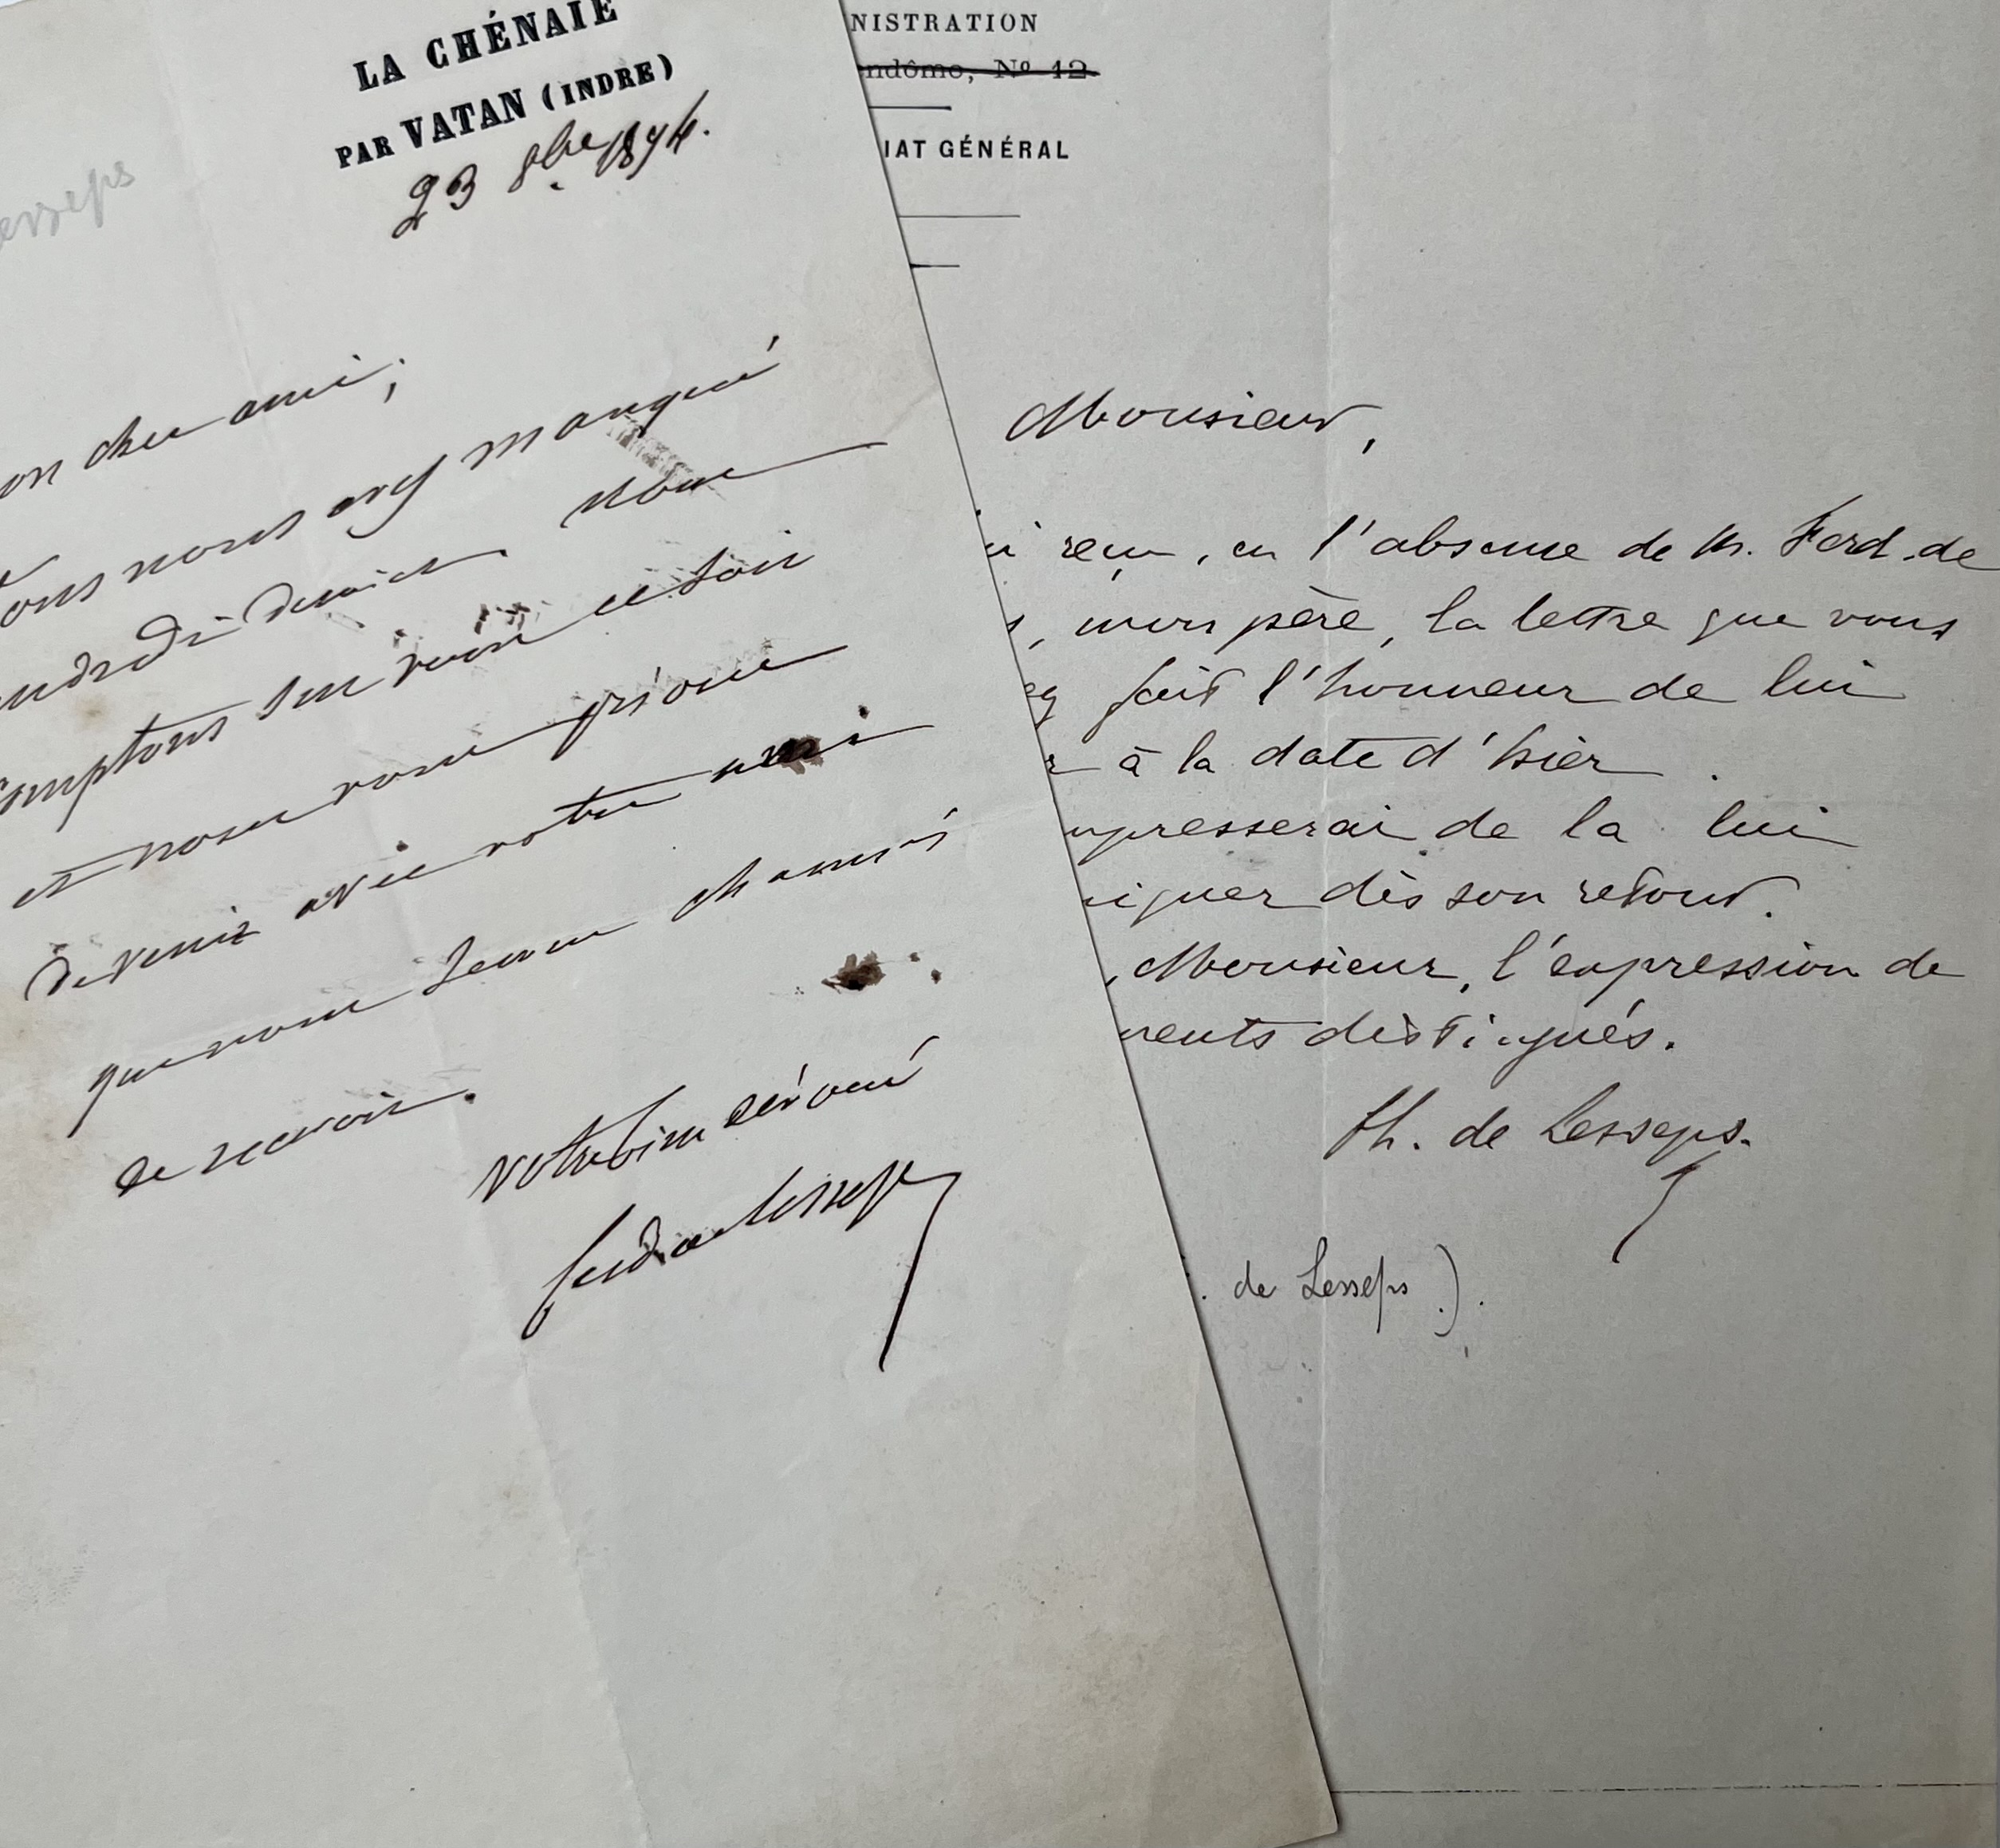 LA CHÉNAIE
PAR VATAN (INDRE)
23 8bre 1874.
esseps
on cher ami,
ous nous avez manqué
endredi dernier. Nous
comptons sur vous ce soir
et nous vous prions
de venir avec votre ami
que nous serons charmés
de recevoir.
Votre bien dévoué
Ferd de Lesseps
NISTRATION
ndôme, Nº 12
IAT GÉNÉRAL
Monsieur,
i reçu, en l'absence de M. Ferd. de
s, mon père, la lettre que vous
ez fait l'honneur de lui
r à la date d'hier.
mpresserai de la lui
iquer dès son retour.
, Monsieur, l'expression de
ments distingués.
Ch. de Lesseps.
. de Lesseps.).